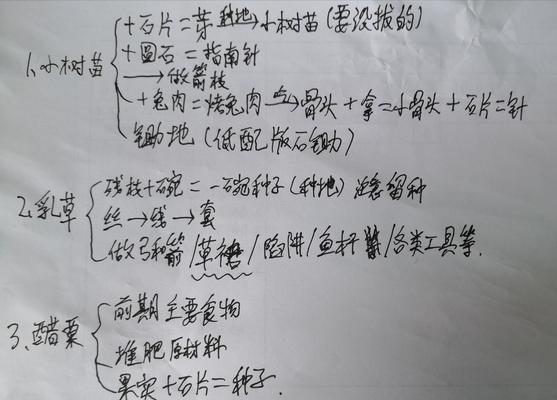 1、小树苗
+石片=芽 种地→小树苗(要没拔的)
+圆石=指南针
→做箭枝
+兔肉=烤兔肉 →骨头+拿=小骨头+石片=针
锄地(低配版石锄)
2、乳草
残枝+碗=一碗种子(种地) 注意留种
丝→线→套
做弓和箭/草裙/陷阱/鱼杆等/各类工具等.
3、醋栗
前期主要食物
堆肥原材料
果实+石片=种子.